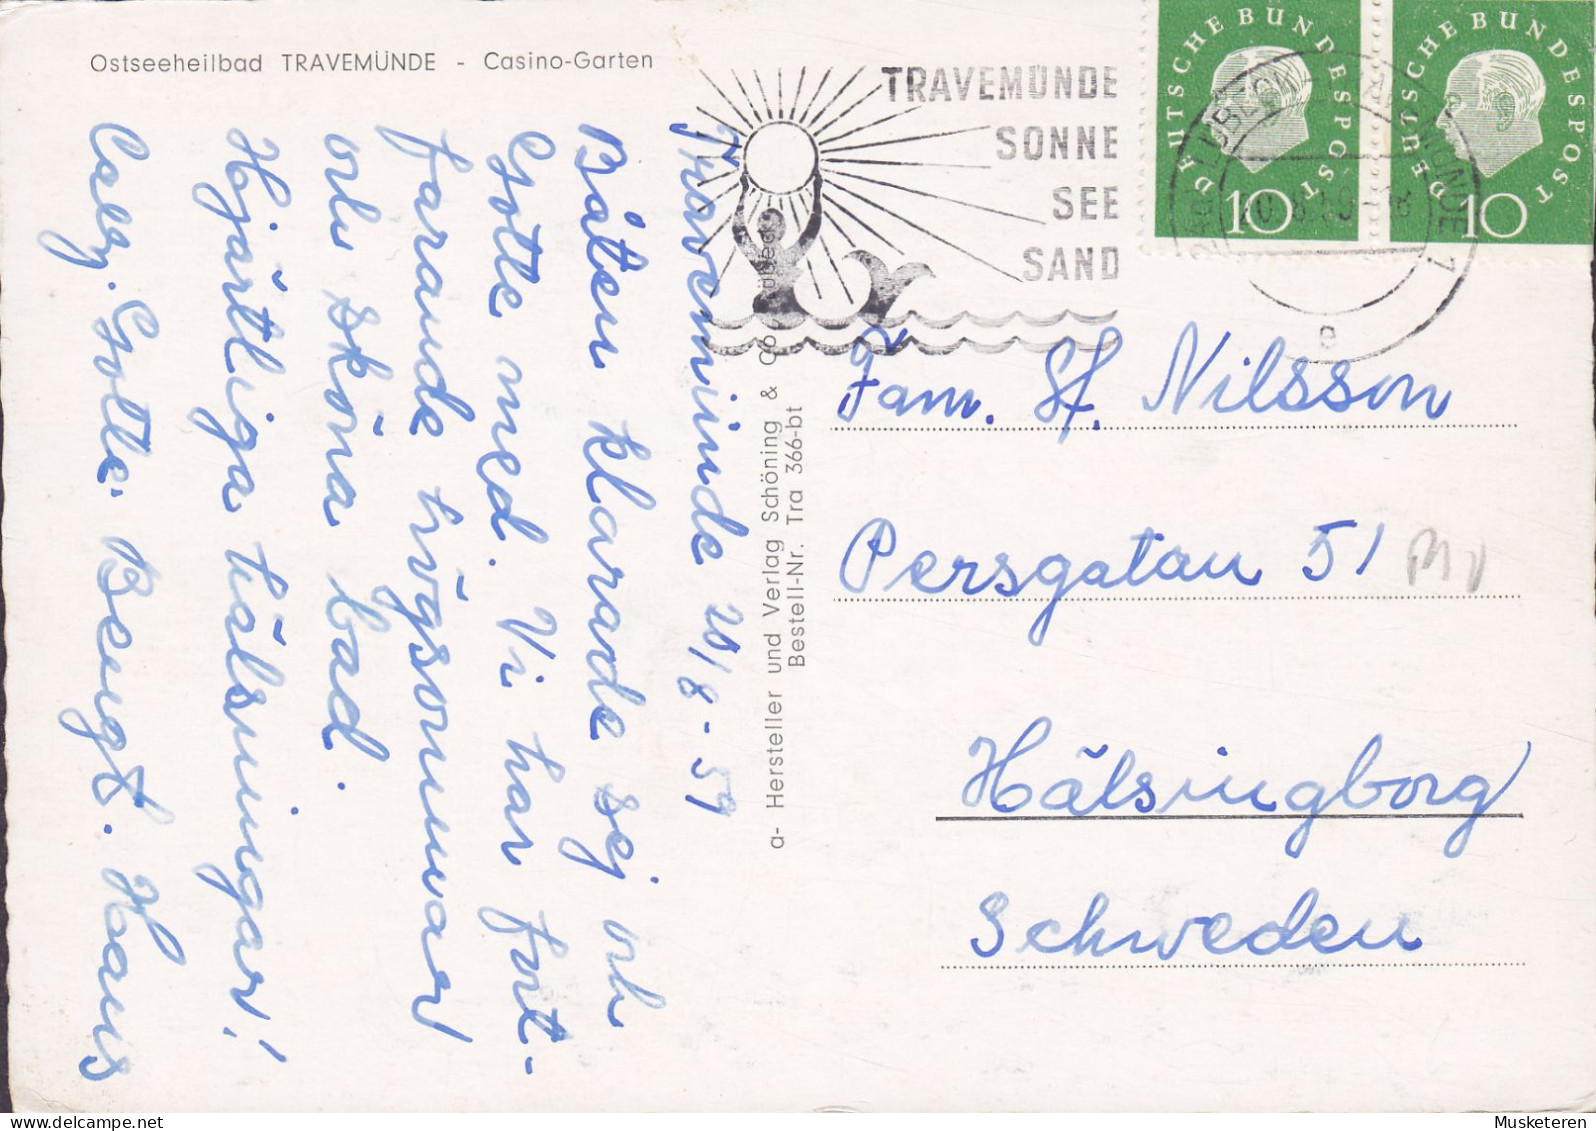 Ostseeheilbad TRAVEMÜNDE - Casino-Garten
TRAVEMÜNDE
SONNE
SEE
SAND
DEUTSCHE BUNDESPOST
10
DEUTSCHE BUNDESPOST
10
LÜBECK-TRAVEMÜNDE 1
20.8.59
e
Travemünde 20/8-59
Båten klarade sej och
Gotte med. Vi har fort-
farande högsommar
och sköna bad.
Hjärtliga hälsningar!
Cally. Gotte. Bengt. Hans
a- Hersteller und Verlag Schöning & Co., Lübeck
Bestell-Nr. Tra 366-bt
Fam. St. Nilsson
Persgatan 51
Hälsingborg
Schweden
Musketeren